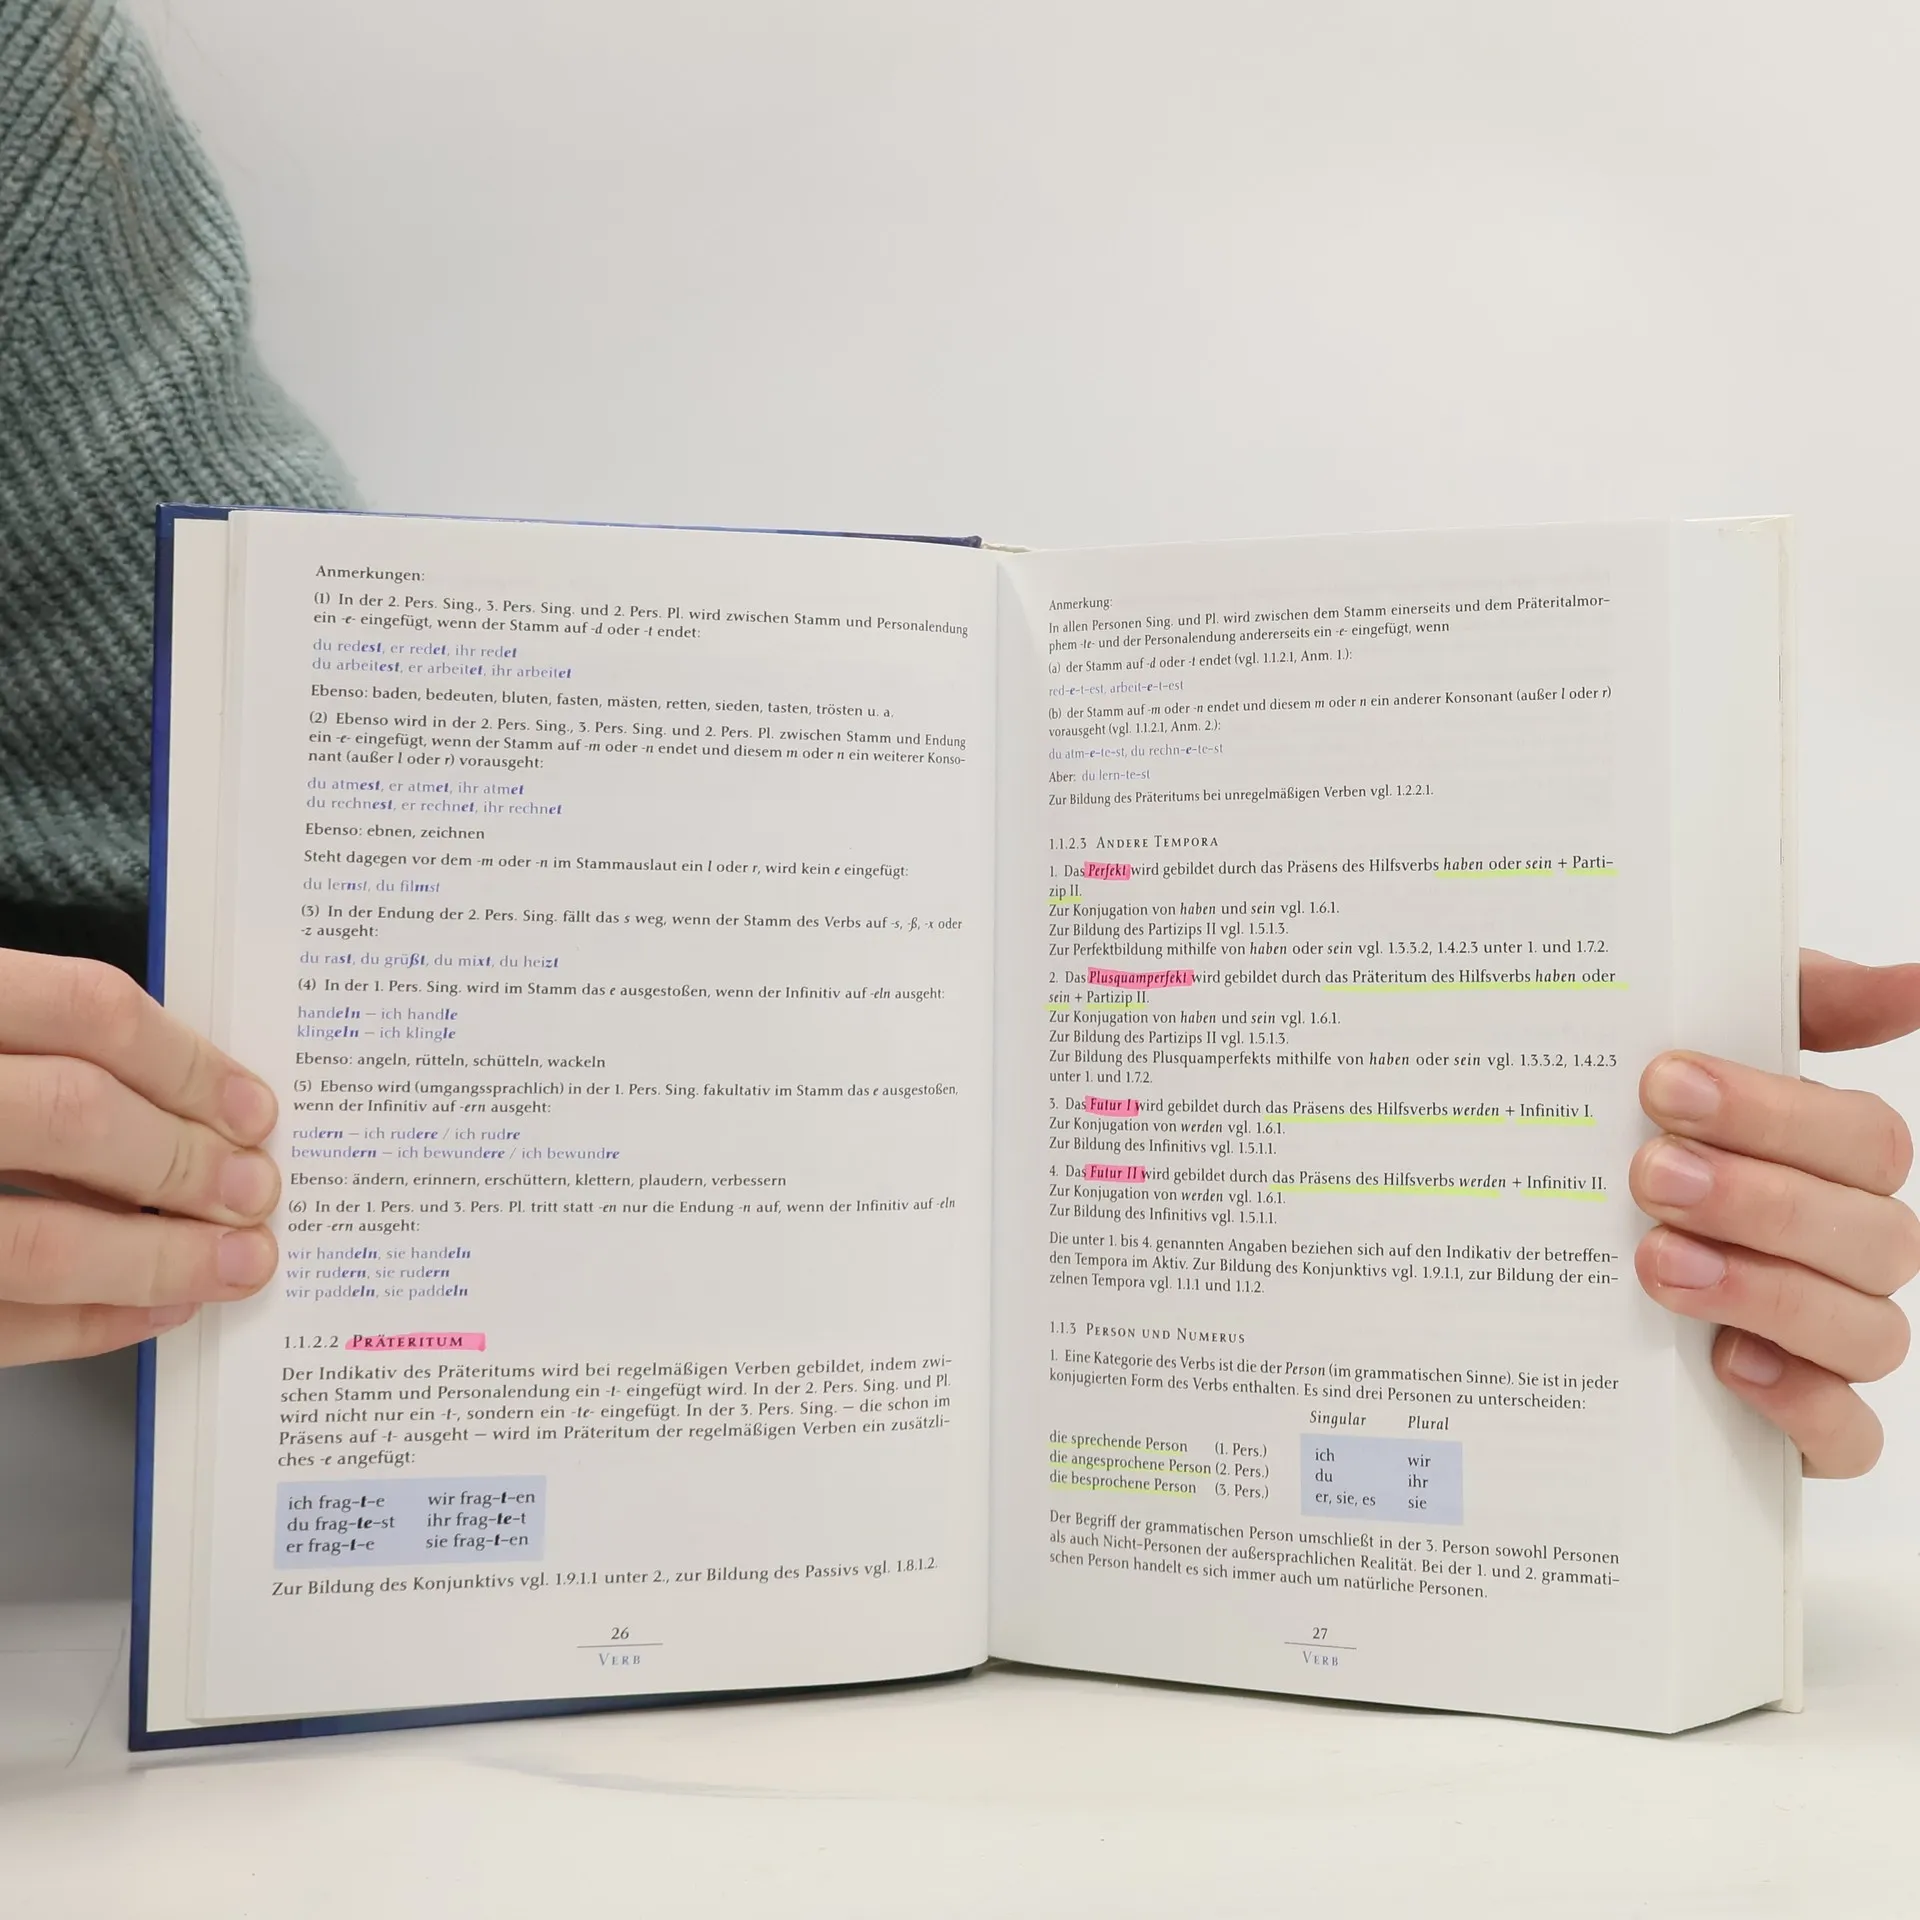 Anmerkungen:
(1) In der 2. Pers. Sing., 3. Pers. Sing. und 2. Pers. Pl. wird zwischen Stamm und Personalendung
ein -e- eingefügt, wenn der Stamm auf -d oder -t endet:
du redest, er redet, ihr redet
du arbeitest, er arbeitet, ihr arbeitet
Ebenso: baden, bedeuten, bluten, fasten, mästen, retten, sieden, tasten, trösten u. a.
(2) Ebenso wird in der 2. Pers. Sing., 3. Pers. Sing. und 2. Pers. Pl. zwischen Stamm und Endung
ein -e- eingefügt, wenn der Stamm auf -m oder -n endet und diesem m oder n ein weiterer Konso-
nant (außer l oder r) vorausgeht:
du atmest, er atmet, ihr atmet
du rechnest, er rechnet, ihr rechnet
Ebenso: ebnen, zeichnen
Steht dagegen vor dem -m oder -n im Stammauslaut ein l oder r, wird kein e eingefügt:
du lernst, du filmst
(3) In der Endung der 2. Pers. Sing. fällt das s weg, wenn der Stamm des Verbs auf -s, -ß, -x oder
-z ausgeht:
du rast, du grüßt, du mixt, du heizt
(4) In der 1. Pers. Sing. wird im Stamm das e ausgestoßen, wenn der Infinitiv auf -eln ausgeht:
handeln – ich handle
klingeln – ich klingle
Ebenso: angeln, rütteln, schütteln, wackeln
(5) Ebenso wird (umgangssprachlich) in der 1. Pers. Sing. fakultativ im Stamm das e ausgestoßen,
wenn der Infinitiv auf -ern ausgeht:
rudern – ich rudere / ich rudre
bewundern – ich bewundere / ich bewundre
Ebenso: ändern, erinnern, erschüttern, klettern, plaudern, verbessern
(6) In der 1. Pers. und 3. Pers. Pl. tritt statt -en nur die Endung -n auf, wenn der Infinitiv auf -eln
oder -ern ausgeht:
wir handeln, sie handeln
wir rudern, sie rudern
wir paddeln, sie paddeln
1.1.2.2 PRÄTERITUM
Der Indikativ des Präteritums wird bei regelmäßigen Verben gebildet, indem zwi-
schen Stamm und Personalendung ein -t- eingefügt wird. In der 2. Pers. Sing. und Pl.
wird nicht nur ein -t-, sondern ein -te- eingefügt. In der 3. Pers. Sing. – die schon im
Präsens auf -t- ausgeht – wird im Präteritum der regelmäßigen Verben ein zusätzli-
ches -e angefügt:
ich frag-t-e wir frag-t-en
du frag-te-st ihr frag-te-t
er frag-t-e sie frag-t-en
Zur Bildung des Konjunktivs vgl. 1.9.1.1 unter 2., zur Bildung des Passivs vgl. 1.8.1.2.
26
VERB
Anmerkung:
In allen Personen Sing. und Pl. wird zwischen dem Stamm einerseits und dem Präteritalmor-
phem -te- und der Personalendung andererseits ein -e- eingefügt, wenn
(a) der Stamm auf -d oder -t endet (vgl. 1.1.2.1, Anm. 1.):
red-e-t-est, arbeit-e-t-est
(b) der Stamm auf -m oder -n endet und diesem m oder n ein anderer Konsonant (außer l oder r)
vorausgeht (vgl. 1.1.2.1, Anm. 2.):
du atm-e-te-st, du rechn-e-te-st
Aber: du lern-te-st
Zur Bildung des Präteritums bei unregelmäßigen Verben vgl. 1.2.2.1.
1.1.2.3 ANDERE TEMPORA
1. Das Perfekt wird gebildet durch das Präsens des Hilfsverbs haben oder sein + Parti-
zip II.
Zur Konjugation von haben und sein vgl. 1.6.1.
Zur Bildung des Partizips II vgl. 1.5.1.3.
Zur Perfektbildung mithilfe von haben oder sein vgl. 1.3.3.2, 1.4.2.3 unter 1. und 1.7.2.
2. Das Plusquamperfekt wird gebildet durch das Präteritum des Hilfsverbs haben oder
sein + Partizip II.
Zur Konjugation von haben und sein vgl. 1.6.1.
Zur Bildung des Partizips II vgl. 1.5.1.3.
Zur Bildung des Plusquamperfekts mithilfe von haben oder sein vgl. 1.3.3.2, 1.4.2.3
unter 1. und 1.7.2.
3. Das Futur I wird gebildet durch das Präsens des Hilfsverbs werden + Infinitiv I.
Zur Konjugation von werden vgl. 1.6.1.
Zur Bildung des Infinitivs vgl. 1.5.1.1.
4. Das Futur II wird gebildet durch das Präsens des Hilfsverbs werden + Infinitiv II.
Zur Konjugation von werden vgl. 1.6.1.
Zur Bildung des Infinitivs vgl. 1.5.1.1.
Die unter 1. bis 4. genannten Angaben beziehen sich auf den Indikativ der betreffen-
den Tempora im Aktiv. Zur Bildung des Konjunktivs vgl. 1.9.1.1, zur Bildung der ein-
zelnen Tempora vgl. 1.1.1 und 1.1.2.
1.1.3 PERSON UND NUMERUS
1. Eine Kategorie des Verbs ist die der Person (im grammatischen Sinne). Sie ist in jeder
konjugierten Form des Verbs enthalten. Es sind drei Personen zu unterscheiden:
Singular Plural
die sprechende Person (1. Pers.) ich wir
die angesprochene Person (2. Pers.) du ihr
die besprochene Person (3. Pers.) er, sie, es sie
Der Begriff der grammatischen Person umschließt in der 3. Person sowohl Personen
als auch Nicht-Personen der außersprachlichen Realität. Bei der 1. und 2. grammati-
schen Person handelt es sich immer auch um natürliche Personen.
27
VERB